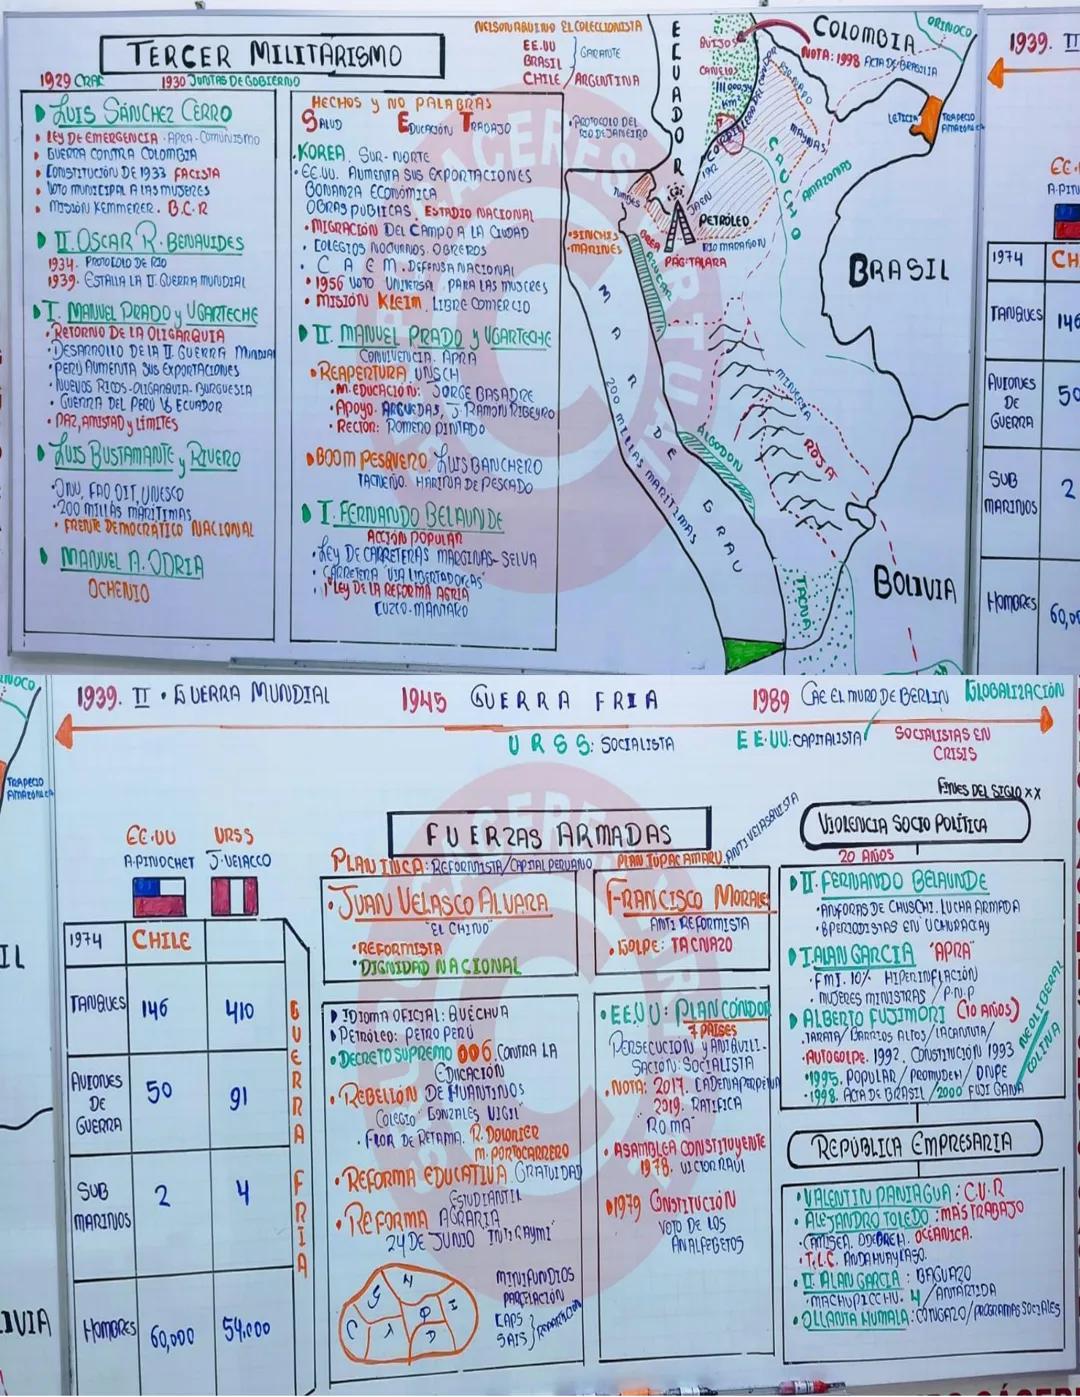 TERCER MILITARISMO
1929 CRAC
1930 JUNTAS DE GOBIERNO
LUIS SÁNCHEZ CERRO
LEY DE EMERGENCIA. APRA-COMUNISMO
GUERRA CONTRA COLOMBIA
CONSTITUCIÓN DE 1933 FACISTA
VOTO MUNICIPAL A LAS MUJERES
MISIÓN KEMMERER. B.C.R
II. OSCAR R. BENAVIDES
1934. PROTOCOLO DE RIO
1939. ESTALLA LA II GUERRA MUNDIAL
I. MANUEL PRADO y UGARTECHE
RETORNO DE LA OLIGARQUIA
DESARROLLO DE LA II GUERRA MUNDIAL
PERÚ AUMENTA SUS EXPORTACIONES
NUEVOS RICOS-OLIGARQUIA-BURGUESIA
GUERRA DEL PERÚ VS ECUADOR
PAZ, AMISTAD y LÍMITES
LUIS BUSTAMANTE y RIVERO
ONU, FAO, OIT, UNESCO
200 MILLAS MARÍTIMAS
FRENTE DEMOCRÁTICO NACIONAL
MANUEL A. ODRIA
OCHENIO
HECHOS y NO PALABRAS
SALUD EDUCACIÓN TRABAJO
KOREA. SUR-NORTE
EE.UU. AUMENTA SUS EXPORTACIONES
BONANZA ECONÓMICA
OBRAS PUBLICAS. ESTADIO NACIONAL
MIGRACIÓN DEL CAMPO A LA CIUDAD
COLEGIOS NOCTURNOS. OBREROS
C A E M. DEFENSA NACIONAL
1956 VOTO UNIVERSAL PARA LAS MUJERES
MISIÓN KLEIM. LIBRE COMERCIO
II. MANUEL PRADO y UGARTECHE
CONVIVENCIA. APRA
REAPERTURA UNSCH
M. EDUCACIÓN: JORGE BASADRE
APOYO. ARGUEDAS, J. RAMON RIBEYRO
RECTOR: ROMERO PINTADO
BOOM PESQUERO. LUIS BANCHERO
TACNEÑO. HARINA DE PESCADO
I. FERNANDO BELAUNDE
ACCIÓN POPULAR
LEY DE CARRETERAS MARGINAS-SELVA
CARRETERA "VIA LIBERTADORAS"
1° LEY DE LA REFORMA AGRIA
CUZCO-MANTARO
NELSON AQUINO EL COLECCIONISTA
EE.UU
BRASIL
CHILE / ARGENTINA
GARANTE
PROTOCOLO DEL
RIO DE JANEIRO
ECUADOR
COLOMBIA
NOTA: 1998 ACTA DE BRASILIA
ORINOCO
QUIJOS
CANELOS
111 000,54
km²
CORDILLERA DEL CONDOR
MAYNAS
CAUCHO
AMAZONAS
LETICIA
TRAPECIO
AMAZONICO
TUMBES
JAEN
1942
PETRÓLEO
RIO MARAÑON
BREA
PAG: TALARA
SINCHIS
MARINES
AZUCAR
BRASIL
MAR DE GRAU
200 MILLAS MARITIMAS
MINUERTA
ROJA
ALGODON
TACNA
BOLIVIA
1939. II
EE.
A.PIN
1974 CH
TANQUES 146
AVIONES
DE
GUERRA
50
SUB
MARINOS
2
HOMBRES
60,00
1939. II. GUERRA MUNDIAL
1945 GUERRA FRIA
1989 CAE EL MURO DE BERLIN
GLOBALIZACIÓN
URSS: SOCIALISTA
EE.UU: CAPITALISTA
SOCIALISTAS EN
CRISIS
FINES DEL SIGLO XX
INOCO
TRAPECIO
AMAZONICO
IL
IVIA
EE.UU URSS
A.PINOCHET J.VELAZCO
1974 CHILE
TANQUES 146 410
AVIONES
DE
GUERRA
50 91
SUB
MARINOS
2 4
HOMBRES 60,000 54,000
GUERRA FRIA
FUERZAS ARMADAS
PLAN INCA: REFORMISTA/CAPITAL PERUANO
PLAN TUPAC AMARU. ANTIVELASQUISTA
JUAN VELASCO ALVARA
"EL CHINO"
REFORMISTA
DIGNIDAD NACIONAL
IDIOMA OFICIAL: QUÉCHUA
PETRÓLEO: PETRO PERÚ
DECRETO SUPREMO 006. CONTRA LA
EDUCACIÓN
REBELIÓN DE HUANTINOS
COLEGIO "GONZALES VIGIL"
FLOR DE RETAMA. R. DOLORIER
M. PORTOCARRERO
REFORMA EDUCATIVA. GRATUIDAD
ESTUDIANTIL
REFORMA AGRARIA
24 DE JUNIO INTI RAYMI
MINIFUNDIOS
PARCELACIÓN
CAPS
SAIS
REPARTICIÓN
FRANCISCO MORALES
ANTI REFORMISTA
GOLPE: TACNAZO
EE.UU: PLAN CÓNDOR
7 PAISES
PERSECUCIÓN y ANIQUILI-
SACIÓN: SOCIALISTA
NOTA: 2017. CADENA PERPETUA
2019. RATIFICA
"ROMA"
ASAMBLEA CONSTITUYENTE
1978. VICTOR RAUL
1979 CONSTITUCIÓN
VOTO DE LOS
ANALFEBETOS
VIOLENCIA SOCIO POLÍTICA
20 AÑOS
II. FERNANDO BELAUNDE
ANFORAS DE CHUSCHI. LUCHA ARMADA
8 PERIODISTAS EN UCHURACCAY
I. ALAN GARCIA "APRA"
FMI. 10% HIPERINFLACIÓN
MUJERES MINISTRAS / P.N.P
ALBERTO FUJIMORI (10 AÑOS)
TARATA/BARRIOS ALTOS/LACANTUTA/
AUTOGOLPE. 1992. CONSTITUCIÓN 1993
1995. POPULAR / PROMUDEH / ONPE
1998. ACTA DE BRASIL / 2000 FUJI GANA
NEOLIBERAL
REPÚBLICA EMPRESARIA
VALENTIN PANIAGUA: C.V.R
ALEJANDRO TOLEDO: MAS TRABAJO
CAMISEA, ODEBREH. OCEÁNICA.
T.L.C. ANDAHUAYLASO.
II. ALAN GARCIA: BAGUAZO
MACHUPICCHU. / ANTARTIDA
OLLANTA HUMALA: CONGAZO/PROGRAMAS SOCIALES